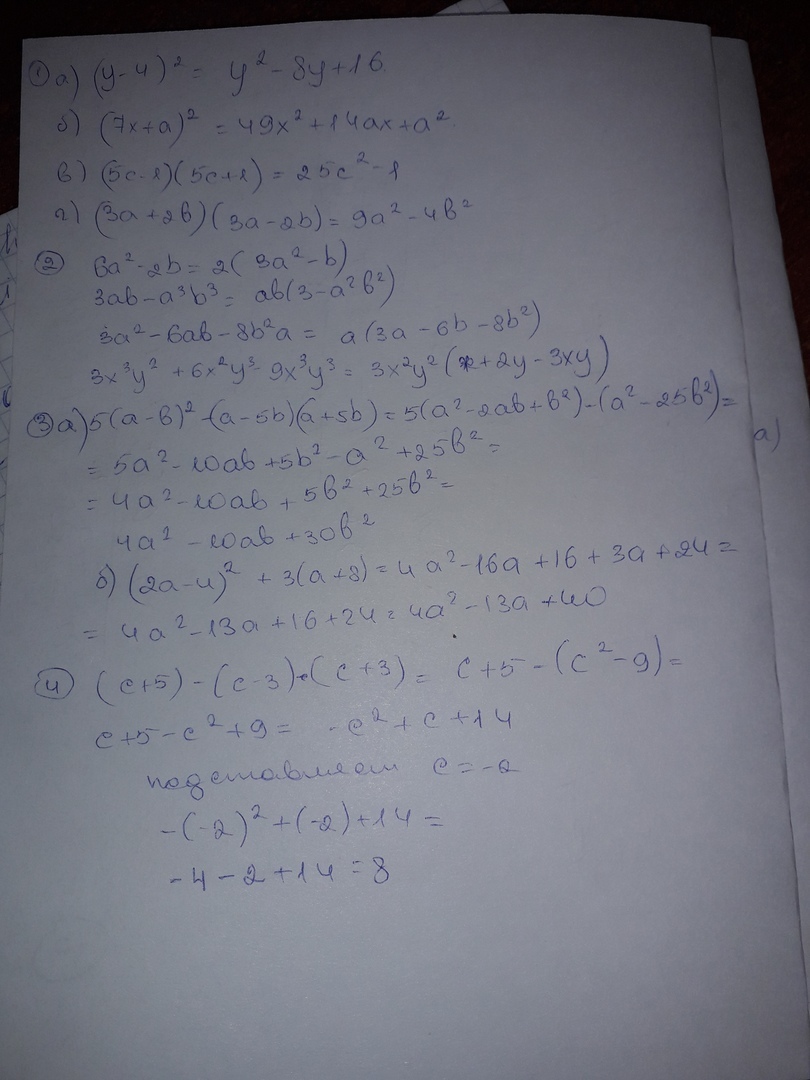 ① а) (y-4)² = y² - 8y + 16
б) (7x+a)² = 49x² + 14ax + a²
в) (5c-1)(5c+1) = 25c² - 1
г) (3a+2b)(3a-2b) = 9a² - 4b²
② 6a² - 2b = 2(3a² - b)
3ab - a³b³ = ab(3 - a²b²)
3a² - 6ab - 8b²a = a(3a - 6b - 8b²)
3x³y² + 6x²y³ - 9x³y³ = 3x²y²(x + 2y - 3xy)
③ а) 5(a-b)² - (a-5b)(a+5b) = 5(a² - 2ab + b²) - (a² - 25b²) =
= 5a² - 10ab + 5b² - a² + 25b² =
= 4a² - 10ab + 5b² + 25b² =
4a² - 10ab + 30b²
б) (2a-4)² + 3(a+8) = 4a² - 16a + 16 + 3a + 24 =
= 4a² - 13a + 16 + 24 = 4a² - 13a + 40
④ (c+5) - (c-3)·(c+3) = c + 5 - (c² - 9) =
c + 5 - c² + 9 = -c² + c + 14
подставляем c = -2
-(-2)² + (-2) + 14 =
-4 - 2 + 14 = 8
а)